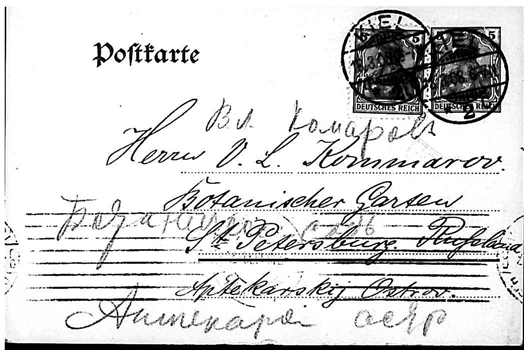 Postkarte
KIEL
KIEL
5
5
5
DEUTSCHES REICH
DEUTSCHES REICH
2
Вл Комаровъ
Herrn V. L. Kommarov
Botanischer Garten
садъ
St. Petersburg. Russland
Aptekarskij Ostrov.
Аптекарск остр